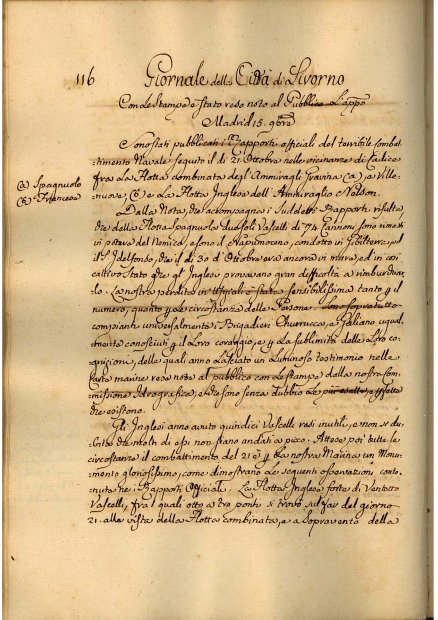 116 Giornale della Città di Livorno
Con le Stampe è Stato reso noto al Pubblico L'appo
Madrid 15. 9bre
Sono stati pubblicati i Rapporti officiali del terribile Combat-
timento Navale seguito il dì 21 Ottobre nelle vicinanze di Cadice
fra La Flotta Combinata degl'Ammiragli Gravina (a) e Ville-
(a) Spagnuolo
(b) Francese
nuova (b) e La Flotta Inglese dell'Ammiraglio Nelson.
Dalla Nota, che accompagna i Suddetti Rapporti risulta,
che della Flotta Spagnuola due soli Vascelli di 74 Cannoni sono rimasti
in potere del Nemico, e sono il Nepumoreno, condotto in Gibilterra, ed il
S. Idelfonso, che il dì 30 d'Ottobre era ancora in mare, ed in così
cattivo Stato che gl'Inglesi provavano gran difficoltà a rimburchiar-
lo. La nostra perdita in Uffiziali è stata sensibilissima tanto p il
numero, quanto p Le circostanze delle Persone. Sono sopratutto
compianti universalmente i Brigadieri Churrucca, e Galiano ugual-
mente conosciuti p il Loro coraggio, e p La sublimità delle Loro co-
gnizioni, delle quali anno Lasciato un Luminoso testimonio nelle
Carte marine rese note al pubblico con Le stampe dalla nostra Com-
missione Idrografica, e che sono senza dubbio Le più esatte, e perfette
che esistono.
Gli Inglesi anno avuto quindici Vascelli resi inutili, e non si du-
bita che molti di essi non siano andati a picco. Attese poi tutte le
circostanze il combattimento del 21 è p La nostra Marina un Monu-
mento gloriosissimo, come dimostrano Le seguenti osservazioni conte-
nute ne' Rapporti Officiali. La Flotta Inglese forte di Ventotto
Vascelli, fra i quali otto a tre ponti si trovò sul far del giorno
21. alla vista della Flotta combinata, e a Sopravento della